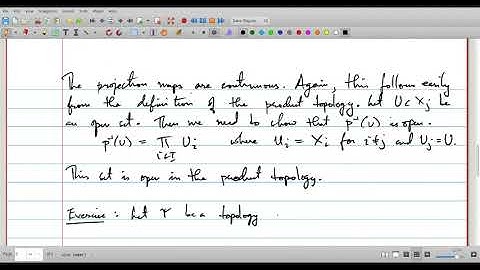 The projection maps are continuous. Again, this follows easily
from the definition of the product topology. Let U ⊂ Xj be
an open set. Then we need to show that p⁻¹(U) is open.
p⁻¹(U) = ∏ Ui where Ui = Xi for i≠j and Uj=U.
i∈I
This set is open in the product topology.
Exercise : Let T be a topology